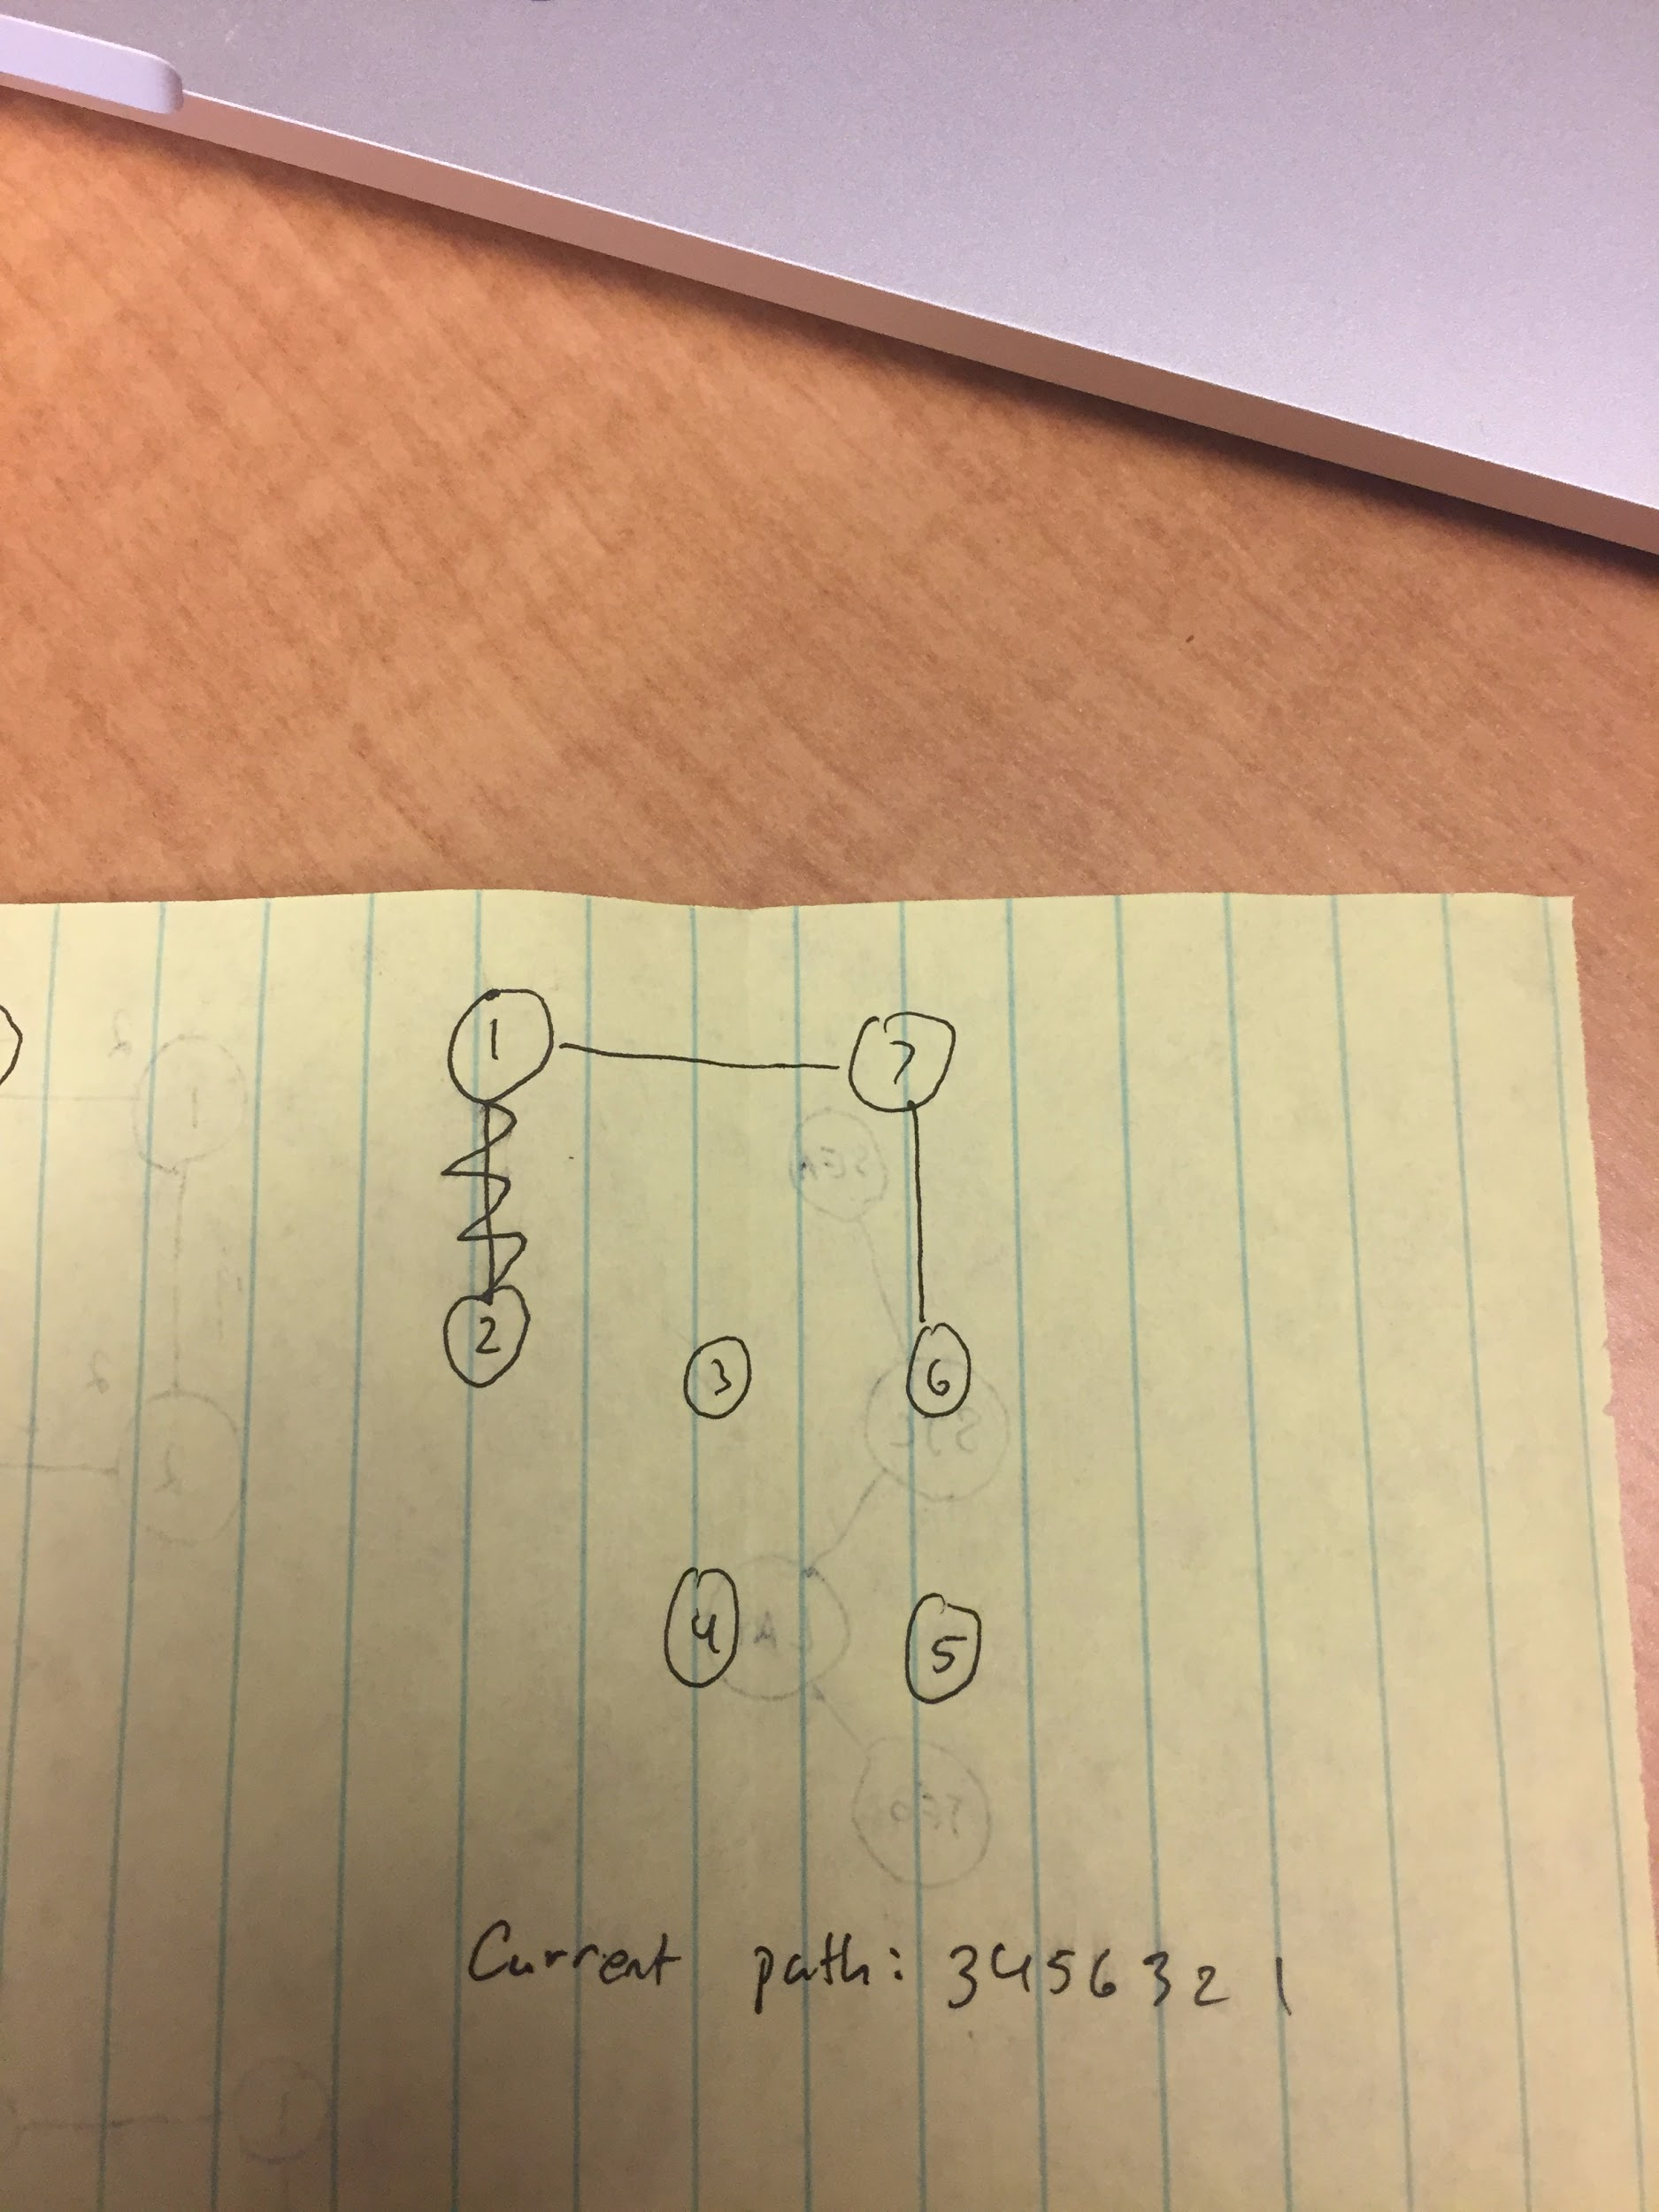 1 7
2 3 6
4 5
Current path: 3456321